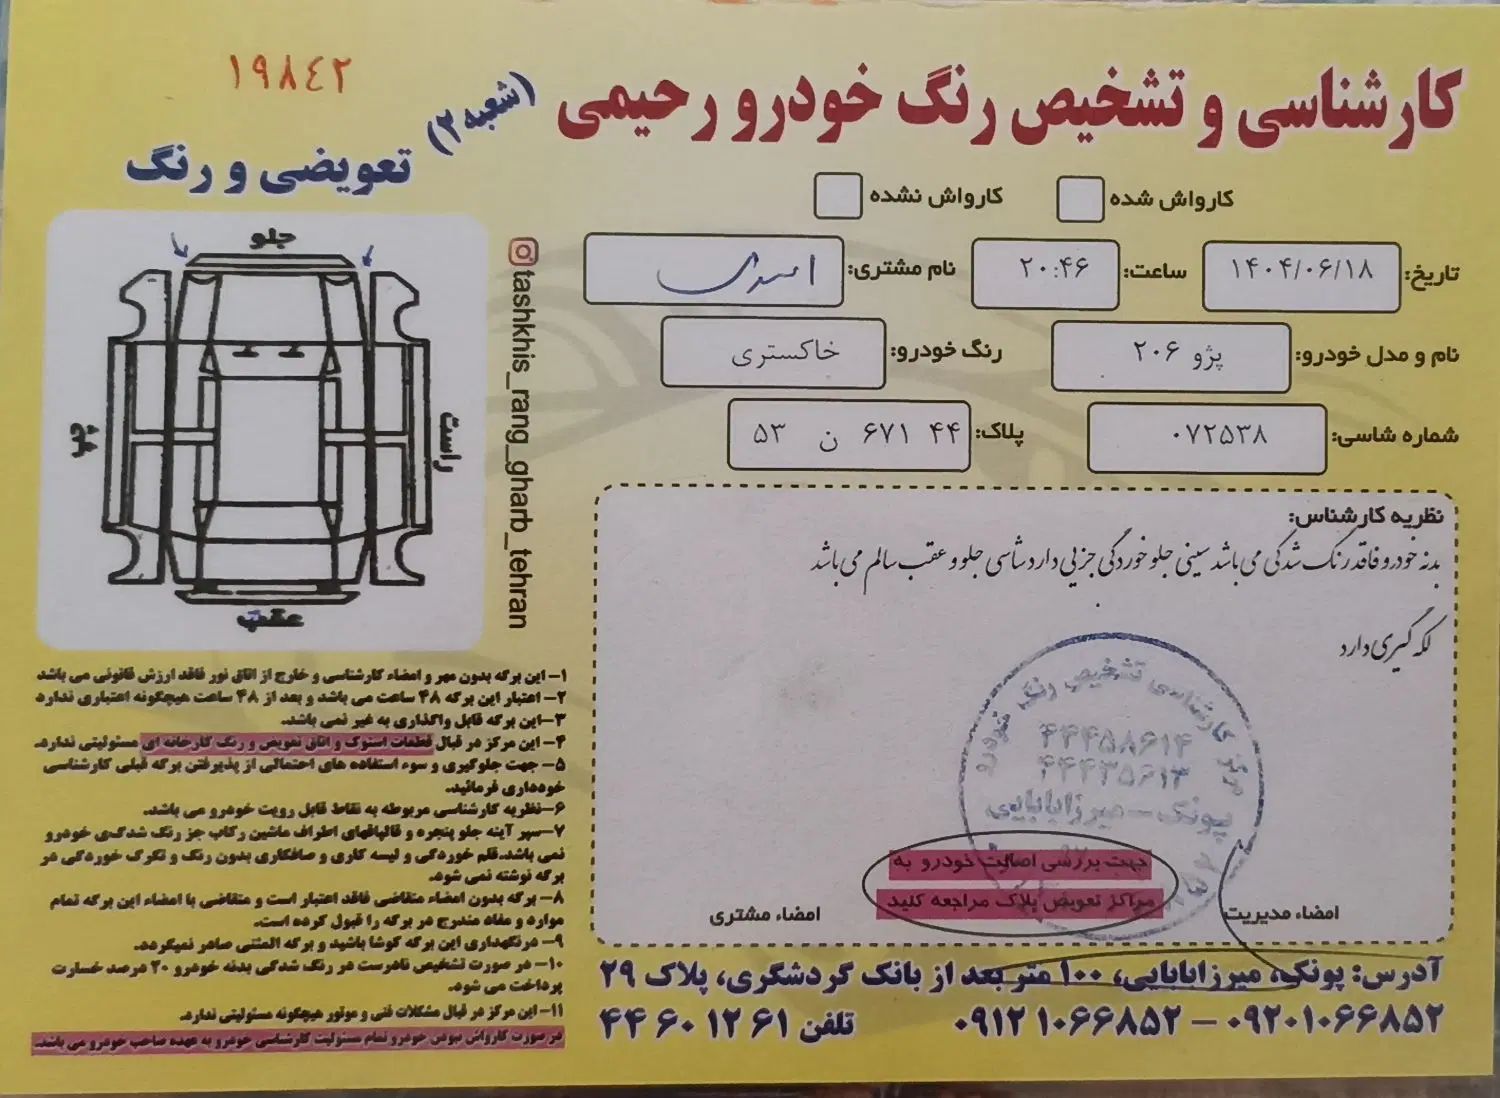 ۱۹۸٤۲
کارشناسی و تشخیص رنگ خودرو رحیمی (شعبه ۲)
تعویضی و رنگ
کارواش شده
کارواش نشده
تاریخ: ۱۴۰۴/۰۶/۱۸
ساعت: ۲۰:۴۶
نام مشتری: اسدی
نام و مدل خودرو: پژو ۲۰۶
رنگ خودرو: خاکستری
شماره شاسی: ۰۷۲۵۳۸
پلاک: ۴۴ ۶۷۱ ن ۵۳
جلو
راست
چپ
عقب
tashkhis_rang_gharb_tehran
نظریه کارشناس:
بدنه خودرو فاقد رنگ شدگی می باشد سینی جلو خوردگی جزیی دارد شاسی جلو و عقب سالم می باشد
لکه گیری دارد
مرکز کارشناسی تشخیص رنگ خودرو
۴۴۴۵۸۶۱۴
۴۴۴۳۵۶۱۳
پونک-میرزابابایی
جهت بررسی اصالت خودرو به
مراکز تعویض پلاک مراجعه کنید
امضاء مدیریت
امضاء مشتری
۱- این برگه بدون مهر و امضاء کارشناسی و خارج از اتاق نور فاقد ارزش قانونی می باشد
۲- اعتبار این برگه ۴۸ ساعت می باشد و بعد از ۴۸ ساعت هیچگونه اعتباری ندارد
۳-این برگه قابل واگذاری به غیر نمی باشد.
۴- این مرکز در قبال قطعات استوک و اتاق تعویض و رنگ کارخانه ای مسئولیتی ندارد.
۵- جهت جلوگیری و سوء استفاده های احتمالی از پذیرفتن برگه قبلی کارشناسی
خودداری فرمائید.
۶-نظریه کارشناسی مربوطه به نقاط قابل رویت خودرو می باشد.
۷-سپر آینه جلو پنجره و قالپاقهای اطراف ماشین رکاب جز رنگ شدگی خودرو
نمی باشد.قلم خوردگی و لیسه کاری و صافکاری بدون رنگ و تکرگ خوردگی در
برگه نوشته نمی شود.
۸- برگه بدون امضاء متقاضی فاقد اعتبار است و متقاضی با امضاء این برگه تمام
موارد و مفاد مندرج در برگه را قبول کرده است.
۹- درنگهداری این برگه کوشا باشید و برگه المثنی صادر نمیگردد.
۱۰- در صورت تشخیص نادرست در رنگ شدگی بدنه خودرو ۲۰ درصد خسارت
پرداخت می شود.
۱۱- این مرکز در قبال مشکلات فنی و موتور هیچگونه مسئولیتی ندارد.
در صورت کارواش نبودن خودرو تمام مسئولیت کارشناسی خودرو به عهده صاحب خودرو می باشد.
آدرس: پونک، میرزابابایی، ۱۰۰ متر بعد از بانک گردشگری، پلاک ۲۹
۰۹۲۰۱۰۶۶۸۵۲ – ۰۹۱۲۱۰۶۶۸۵۲ تلفن ۴۴۶۰۱۲۶۱